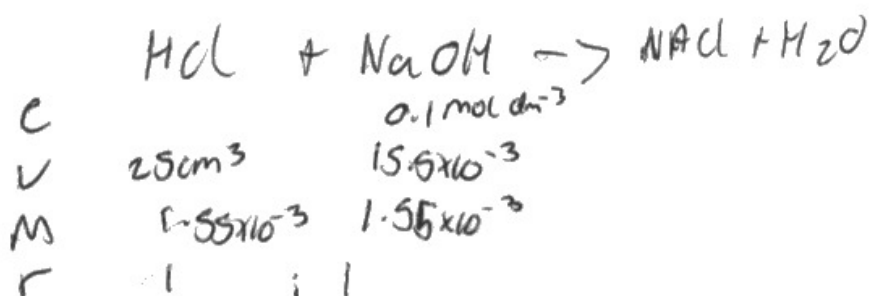 HCl + NaOH -> NACl + H2O
C 0.1 mol dm-3
V 25cm3 15.5x10-3
M 1.55x10-3 1.55x10-3
r 1 : 1